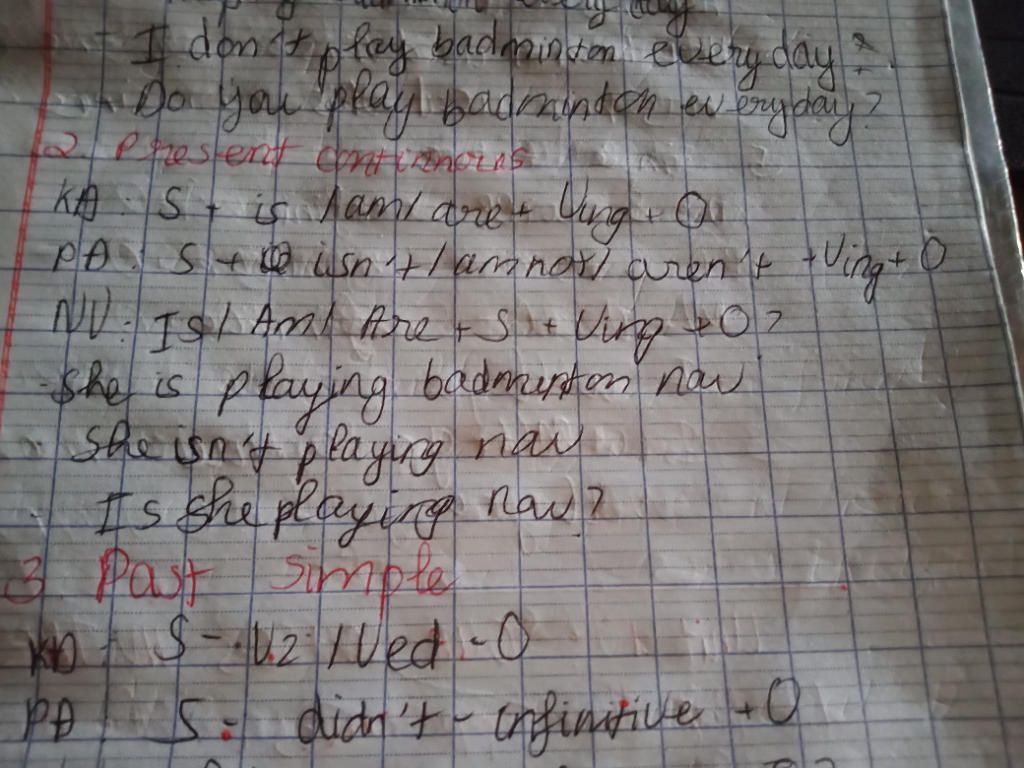 every day
- I don't play badminton everyday.
- Do you play badminton everyday?
2. Present continuous
KĐ: S + is /am/ are + Ving + O
PĐ: S + isn't / am not / aren't + Ving + O
NV: Is / Am / Are + S + Ving + O?
- She is playing badminton now
- She isn't playing now
- Is she playing now?
3. Past simple
KĐ: S - V2 / Ved - O
PĐ: S - didn't - infinitive + O